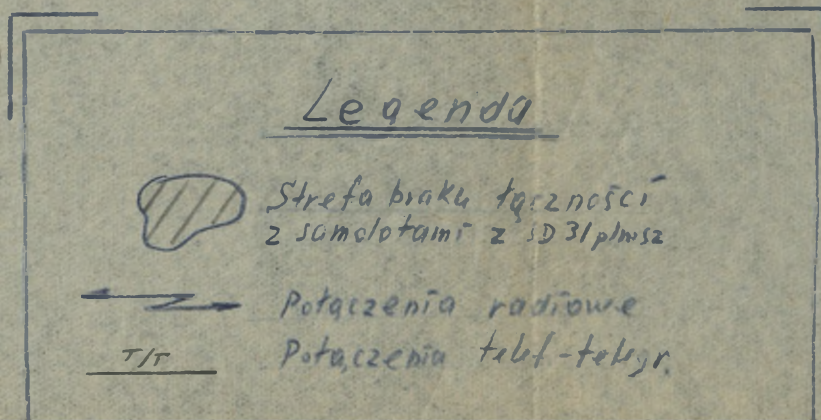 Legenda
Strefa braku łączności
z samolotami z SD 31 plmsz
Połączenia radiowe
T/T Połączenia telef-telegr.